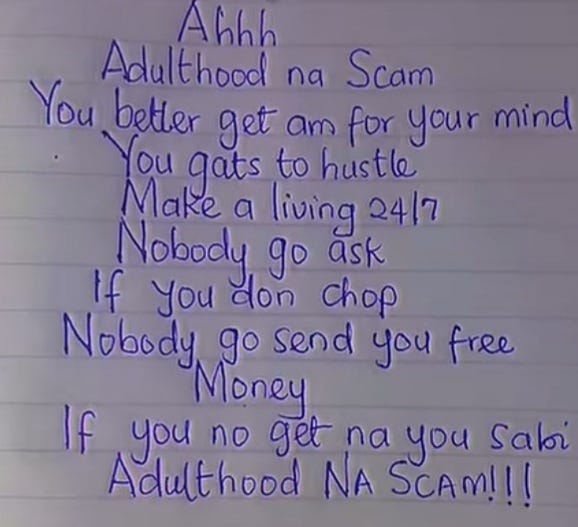 Ahhh
Adulthood na Scam
You better get am for your mind
You gats to hustle
Make a living 24/7
Nobody go ask
If you don chop
Nobody go send you free
Money
If you no get na you sabi
Adulthood NA SCAM!!!